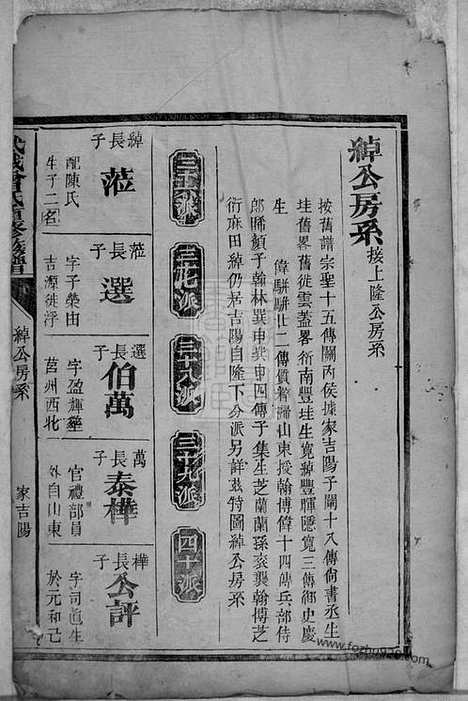 綽公房系 接上隆公房系
按舊譜宗聖十五傳關內侯據家吉陽子闡十八傳尚書丞生
珪舊畧舊徙雲蓋畧衍南豐珪生寬綽豐暉隱寬三傳御史慶
生
偉駢駢廿二傳質粹歸山東授翰博偉十四傳兵部侍
郎晞顏子翰林巽申巽申四傳子集生芝蘭蘭孫袞襲翰博芝
衍麻田綽仍居吉陽自隆下分派另詳茲特圖綽公房系
三十六派
三十七派
三十八派
三十九派
四十派
綽長子 蒞
配陳氏
生子二名
蒞長子 選
字子榮由
吉源徙浮
選長子 伯萬
字盈輝
莒州西北
萬長子 泰樺
官禮部員
外自山東
樺長子 公評
字司直生
於元和己
武城曾氏重修族譜
綽公房系
家吉陽
www.fozhu920.com